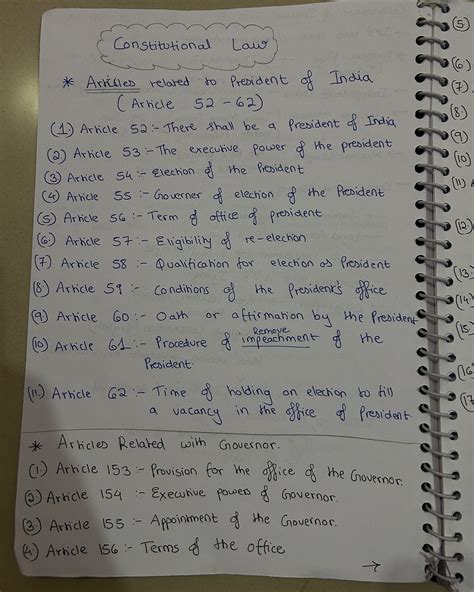 Constitutional Law
* Articles related to President of India
( Article 52 - 62)
(1) Article 52 :- There shall be a President of India
(2) Article 53 :- The executive power of the president
(3) Article 54 :- Election of the President
(4) Article 55 :- Governer of election of the President
(5) Article 56 :- Term of office of president
(6) Article 57 :- Eligibility of re-election
(7) Article 58 :- Qualification for election as President
(8) Article 59 :- Conditions of the President's office
(9) Article 60 :- Oath or affirmation by the President
remove
(10) Article 61 :- Procedure of impeachment of the
President.
(11) Article 62 :- Time of holding an election to fill
a vacancy in the office of President.
* Articles Related with Governor.
(1) Article 153 :- Provision for the office of the Governor.
(2) Article 154 :- Executive powers of Governor.
(3) Article 155 :- Appointment of the Governor.
(4) Article 156 :- Terms of the office
→
(5)
(6)
(7)
(8)
(9)
(10)
(11)
(12)
(13)
(14)
(15
(16
(17